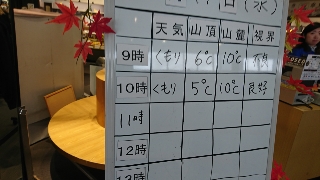 日(水)
天気 山頂 山麓 視界
9時 くもり 6℃ 10℃ 不良
10時 くもり 5℃ 10℃ 良好
11時
12時
13時